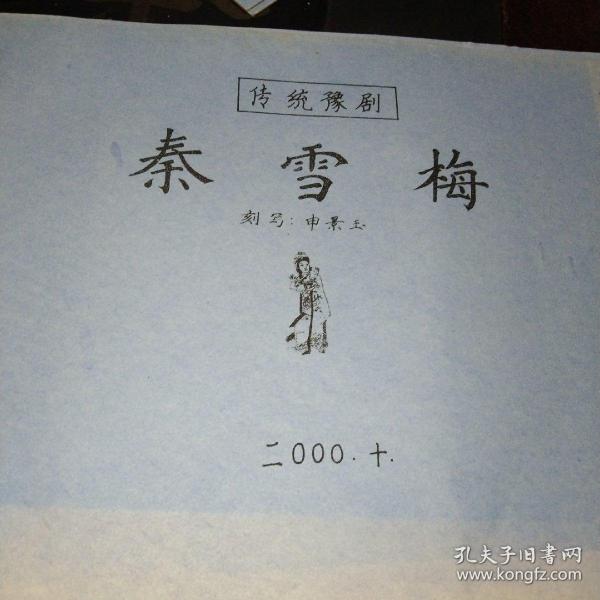 传统豫剧
秦雪梅
刻写：申景玉
二000.十.
孔夫子旧书网
www.kongfz.com